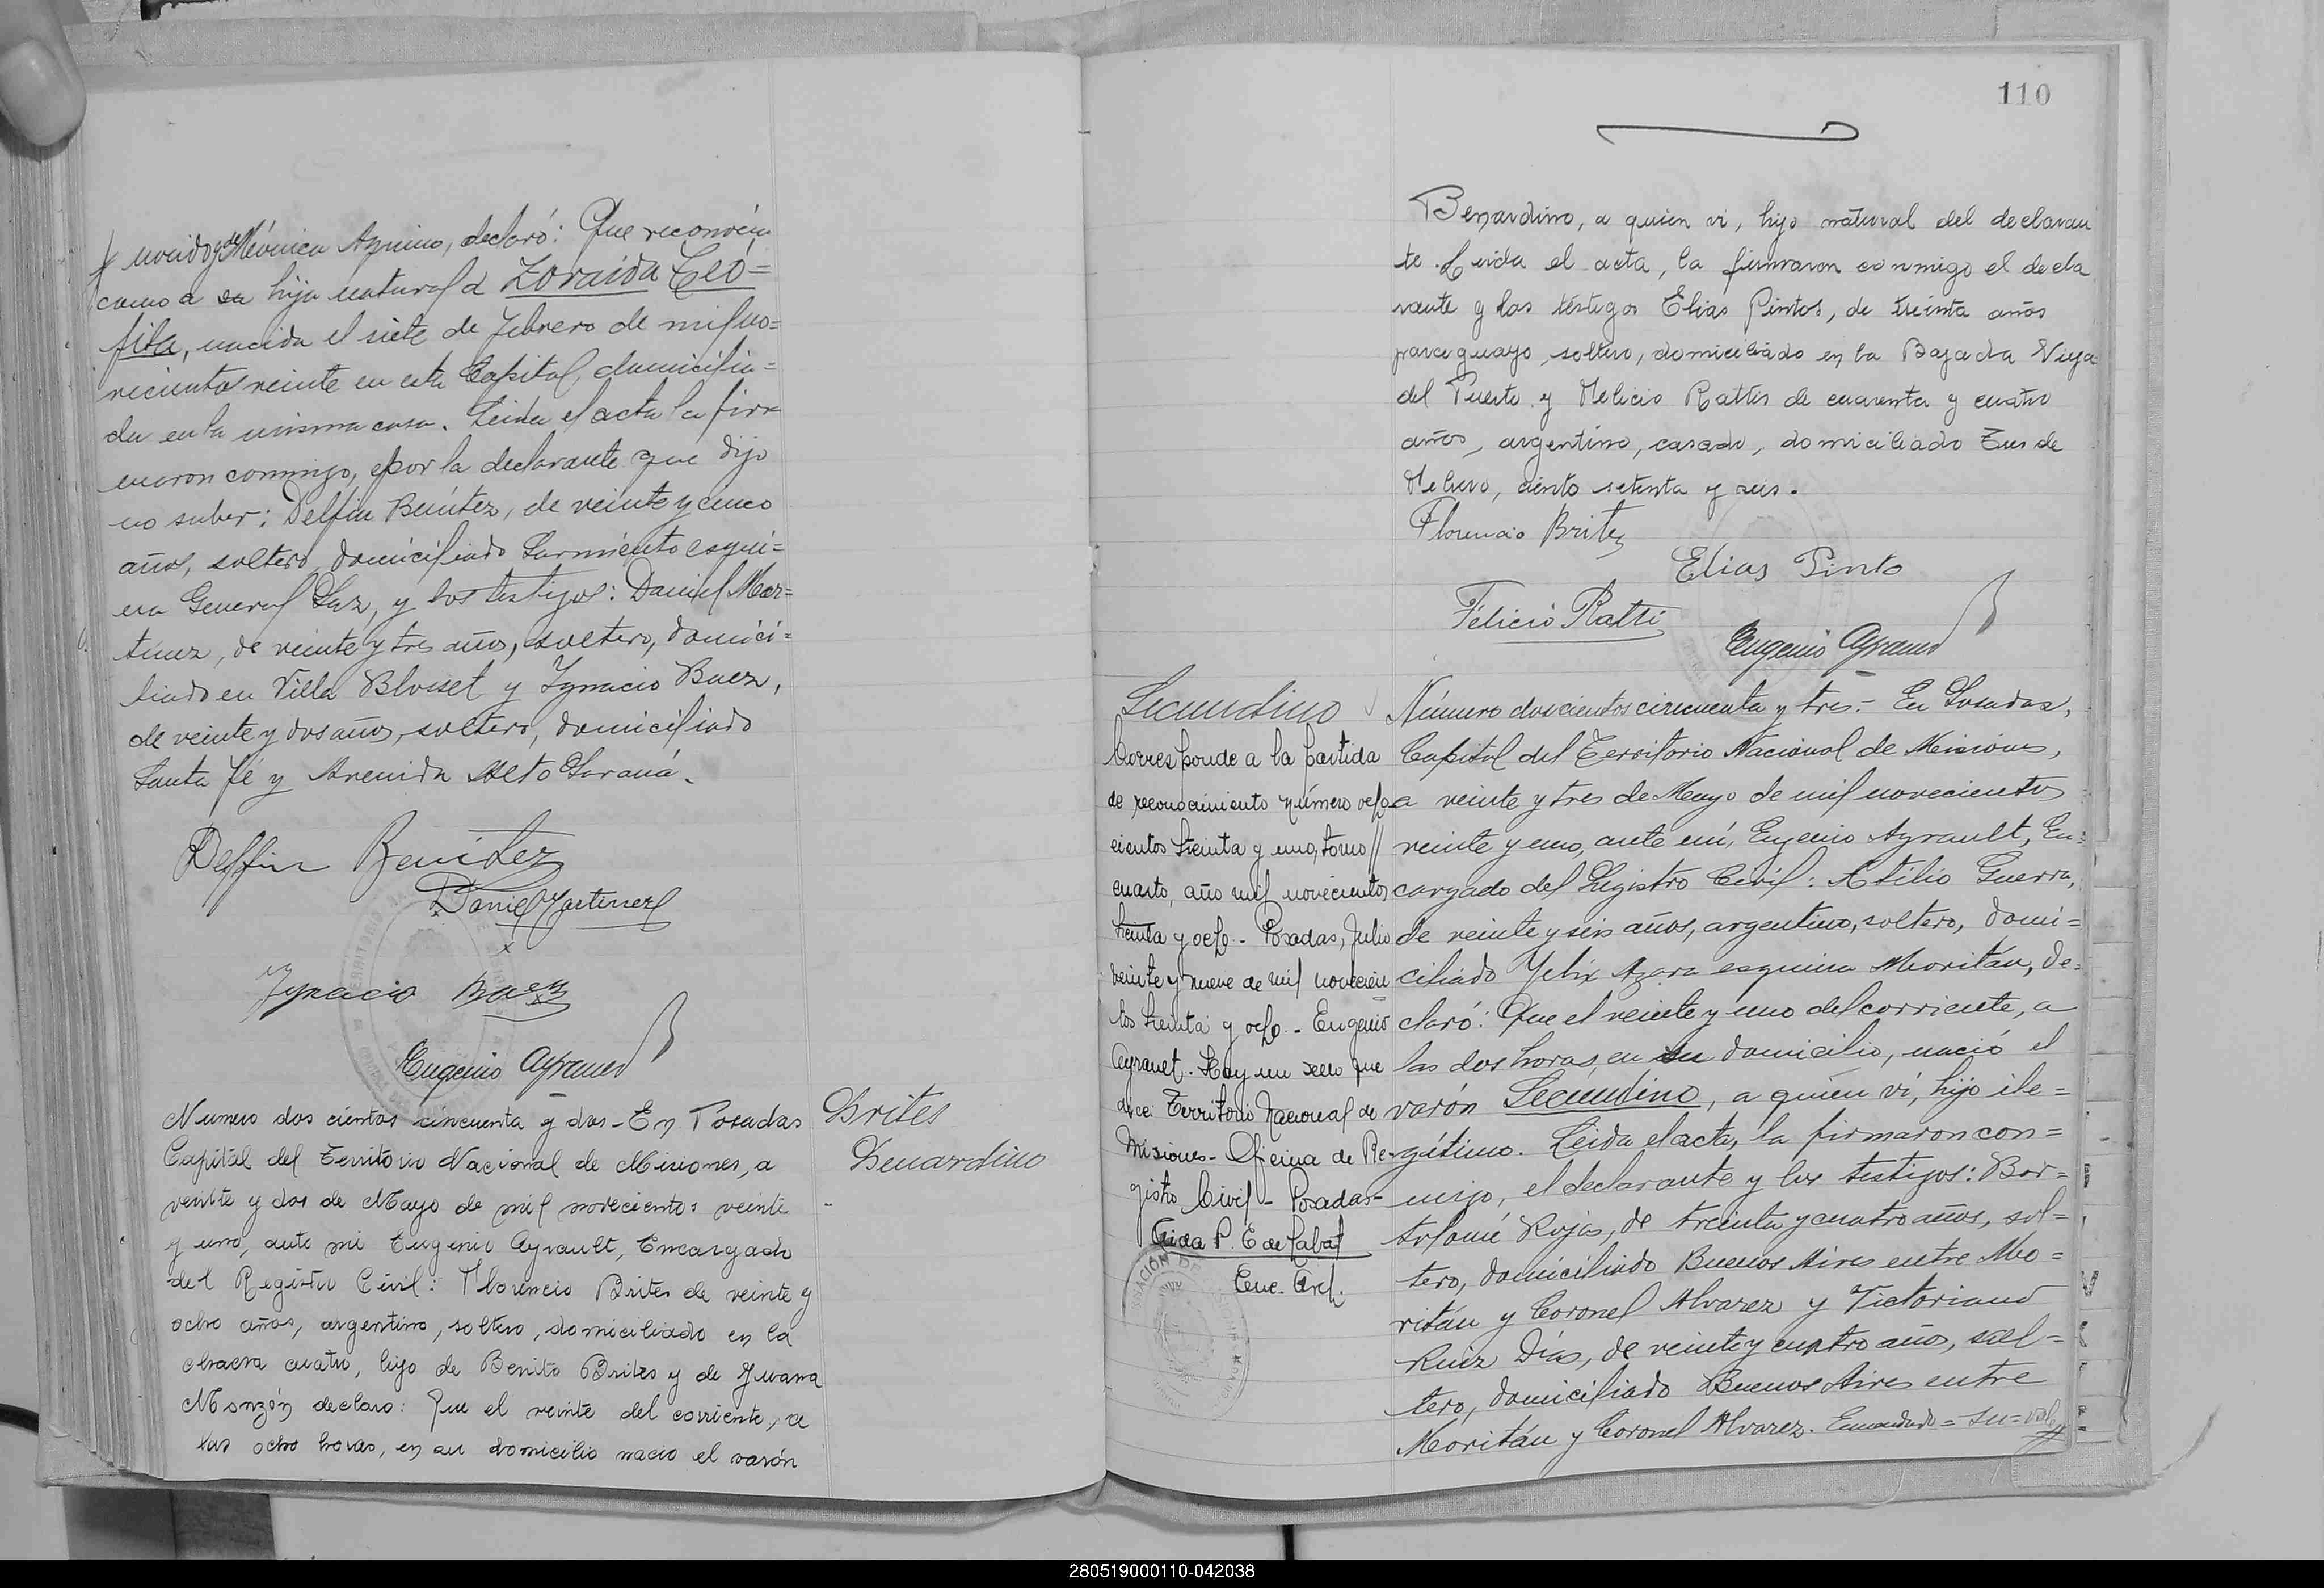 nocido, y de Mónica Aquino, declaró: Que reconocía
como a su hija natural a Zoraida Cleó=
fila, nacida el siete de Febrero de mil no=
vecientos veinte en esta Capital, domicilia=
da en la misma casa. Leida el acta la fir=
maron conmigo, por la declarante que dijo
no saber: Delfin Benítez, de veinte y cinco
años, soltero, domiciliado Sarmiento esqui=
na General Paz, y los testigos: Daniel Mar=
tínez, de veinte y tres años, soltero, domici=
liado en Villa Blosset y Ignacio Baez,
de veinte y dos años, soltero, domiciliado
Santa Fé y Avenida Alto Paraná.
Delfin Benitez
Daniel Martinez
Ignacio Baez
Eugenio Ayrault
Numero dos cientos cincuenta y dos - En Posadas
Capital del Territorio Nacional de Misiones, a
veinte y dos de Mayo de mil novecientos veinte
y uno, ante mi Eugenio Ayrault, Encargado
del Registro Civil: Florencio Brites de veinte y
ocho años, argentino, soltero, domiciliado en la
chacra cuatro, hijo de Benito Brites y de Juana
Monzón declaro: Que el veinte del corriente, a
las ocho horas, en su domicilio nacio el varón
Brites
Benardino
110
Benardino, a quien vi, hijo natural del declaran
te. Leida el acta, la firmaron conmigo el decla
rante y los téstigos Elias Pintos, de treinta años
paraguayo, soltero, domiciliado en la Bajada Vieja
del Puerto y Felicio Rattis de cuarenta y cuatro
años, argentino, casado, domiciliado
ciento setenta y seis.
Florencio Brites
Elias Pinto
Felicio Ratti
Eugenio Ayrault
Secundino
Corresponde a la partida
de reconocimiento número ocho
cientos treinta y uno, tomo //
cuarto, año mil novecientos
treinta y ocho. - Posadas, Julio
veinte y nueve de mil novecien
tos treinta y ocho. - Eugenio
Ayrault. Hay un sello que
dice: Territorio Nacional de
Misiones - Oficina de Re-
gistro Civil - Posadas -
Enc. Arch.
Número doscientos cincuenta y tres.- En Posadas,
Capital del Territorio Nacional de Misiones,
a veinte y tres de Mayo de mil novecientos
veinte y uno, ante mí, Eugenio Ayrault, En=
cargado del Registro Civil: Atilio Guerra,
de veinte y seis años, argentino, soltero, domi=
ciliado Felix Azara esquina Moritán, de=
claró: Que el veinte y uno del corriente, a
las dos horas, en su domicilio, nació el
varón Secundino, a quien ví, hijo ile=
gítimo. Leida el acta, la firmaron con=
migo, el declarante y los testigos: Bar=
tolomé Rojas, de treinta y cuatro años, sol=
tero, domiciliado Buenos Aires entre Mo=
ritán y Coronel Alvarez y Victoriano
Ruiz Días, de veinte y cuatro años, sol=
tero, domiciliado Buenos Aires entre
Moritán y Coronel Alvarez. Enmendado = su = vale
280519000110-042038